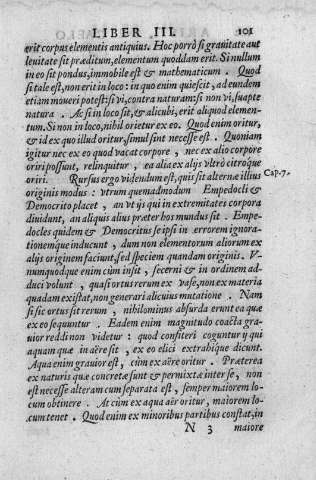 LIBER III. 101
erit corpus elementis antiquius. Hoc porrò si grauitate aut
leuitate sit præditum, elementum quoddam erit. Si nullum
in eo sit pondus, immobile est & mathematicum. Quod
si tale est, non erit in loco: in quo enim quiescit, ad eundem
etiam moueri potest: si vi, contra naturam: si non vi, suapte
natura. Ac si in loco sit, & alicubi, erit aliquod elemen-
tum. Si non in loco, nihil orietur ex eo. Quod enim oritur,
& id ex quo illud oritur, simul sint necesse est. Quoniam
igitur nec ex eo quod vacat corpore, nec ex alio corpore
oriri possunt, relinquitur, ea alia ex alijs vltrò citroque
oriri. Rursus ergo videndum est, quis sit alternæ illius
Cap. 7.
originis modus: vtrum quemadmodum Empedocli &
Democrito placet, an vt ijs qui in extremitates corpora
diuidunt, an aliquis alius præter hos mundus sit. Empe-
docles quidem & Democritus se ipsi in errorem ignora-
tionemque inducunt, dum non elementorum aliorum ex
alijs originem faciunt, sed speciem quandam originis. V-
numquodque enim cùm insit, secerni & in ordinem ad-
duci volunt, quasi ortus rerum ex vase, non ex materia
quadam existat, non generari alicuius mutatione. Nam
si sic ortus sit rerum, nihilominus absurda erunt ea quæ
ex eo sequuntur. Eadem enim magnitudo coacta gra-
uior reddi non videtur: quod consiteri coguntur ij qui
aquam quæ in aëre sit, ex eo elici extrahique dicunt.
Aqua enim grauior est, cùm ex aëre oritur. Præterea
ex naturis quæ concretæ sunt & permixtæ inter se, non
est necesse alteram cum separata est, semper maiorem lo-
cum obtinere. At cùm ex aqua aër oritur, maiorem lo-
cum tenet. Quod enim ex minoribus partibus constat, in
N 3 maiore